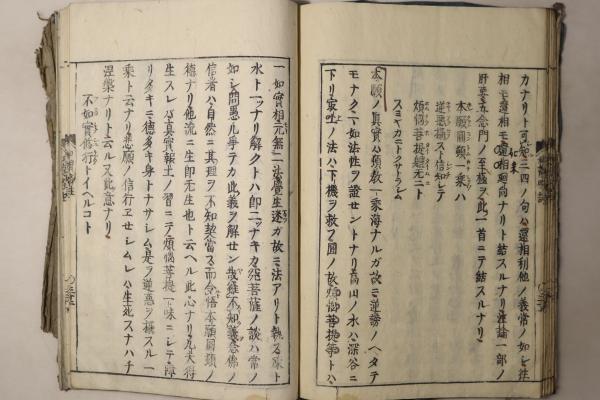 カナリト可知三四ノ句ハ還相利他ノ義常ノ如シ往
相モ還相モ廻向ナリト結スルナリ註論一部ノ
肝要五念門ノ至極此一首ニテ結スルナリ
本願圓頓一乗ハ
逆悪攝スト信知シテ
煩悩菩提體无二ト
スミヤカニトクサトラシム
本願ノ真實ハ頓教一乗海ナルガ故ニ逆謗ノヘタテ
モナク一如法性ヲ證セシントナリ高山ノ水ハ深谷ニ
下リ ノ法ハ下機ヲ救フ 故煩悩菩提等トハ
一如實相元無二法衆生迷ガ故ニ二法アリト執ス氷ト
水ト一ツナリ解クトハ即二ツナキカ 菩薩ノ談ハ常ノ
如シ問愚ル争テカ此義ヲ解セン哉雖不知義念佛ノ
信者ハ自然ニ其理ヲ不知契當 而令悟本願圓頓ノ
徳ナリ他流ニ生即无生也ト云ヘル此心ナリ凡夫得
生スレハ真實報土ノ習ニテ煩悩菩提一味ニシテ障
リ多キニ徳多キ身トナサシム是ヲ逆悪ヲ攝スル一
乗ト云ナリ悲願ノ信行エセシムレハ生死スナハチ
涅槃ナリト云フ又此意ナリ
不如實修行トイヘルコト